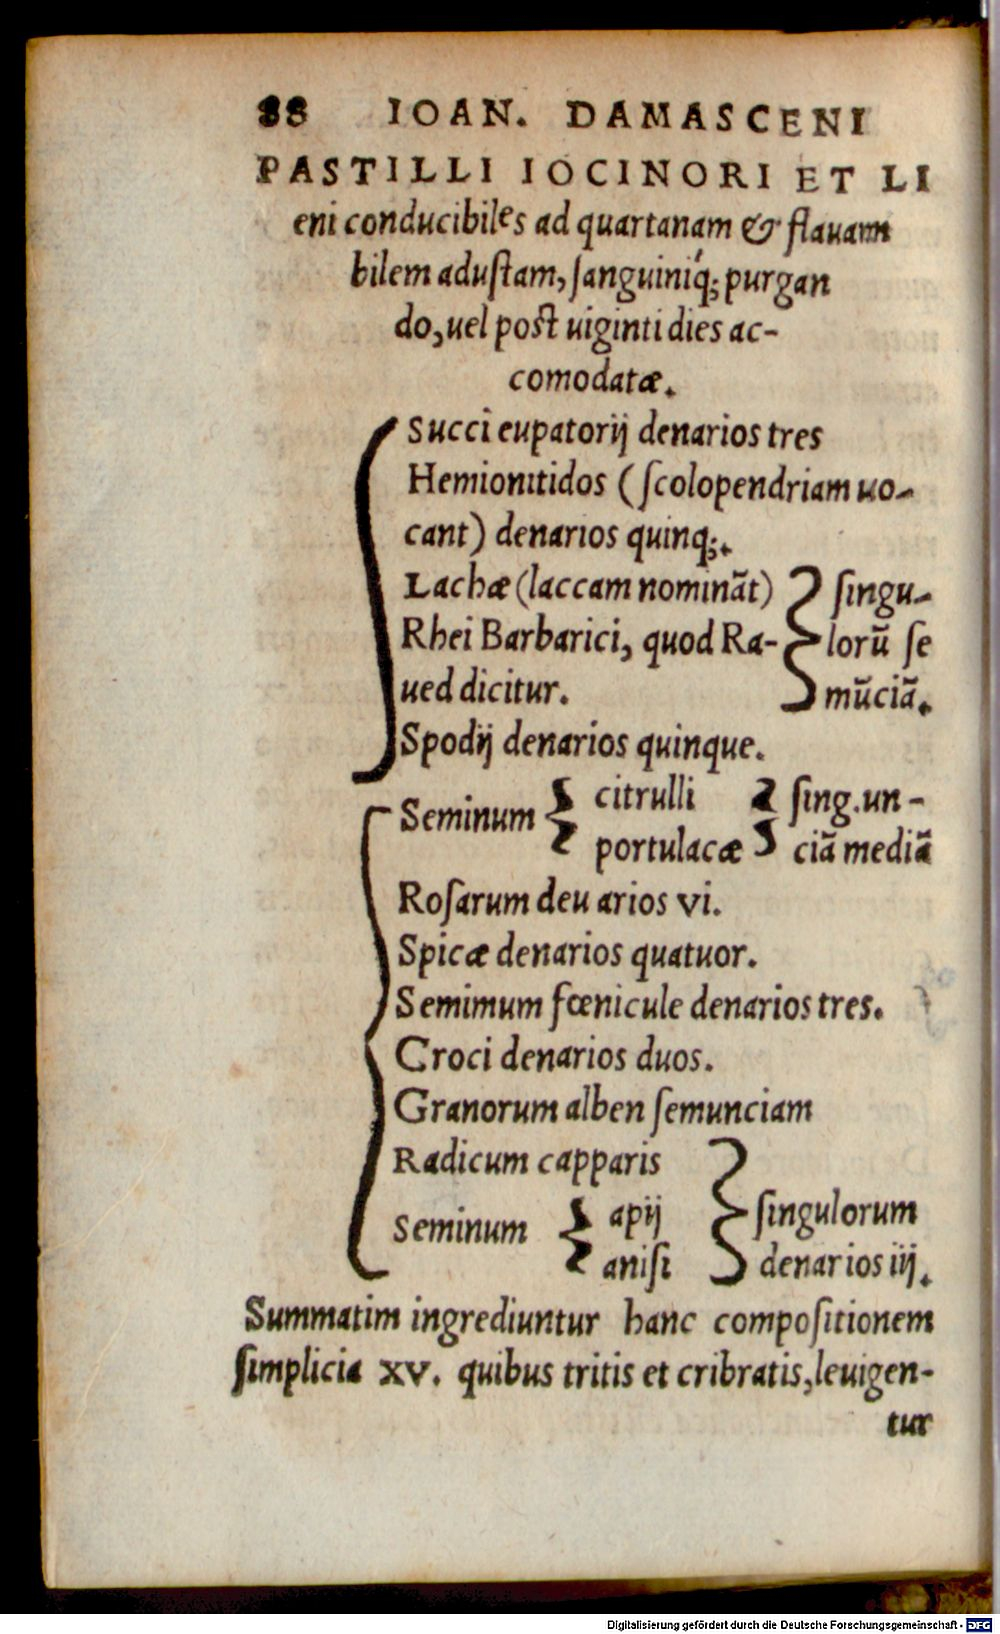 88 IOAN. DAMASCENI
PASTILLI IOCINORI ET LI
eni conducibiles ad quartanam & flauam
bilem adustam, sanguiniq́; purgan
do, uel post uiginti dies ac-
comodatæ.
Succi eupatorij denarios tres
Hemionitidos (scolopendriam uo-
cant) denarios quinq;.
Lachæ (laccam nominãt) singu-
Rhei Barbarici, quod Ra- lorũ se
ued dicitur. mũciã.
Spodij denarios quinque.
Seminum citrulli sing. un-
portulacæ ciã mediã
Rosarum deu arios vi.
Spicæ denarios quatuor.
Semimum fœnicule denarios tres.
Croci denarios duos.
Granorum alben semunciam
Radicum capparis
Seminum apij singulorum
anisi denarios iij.
Summatim ingrediuntur hanc compositionem
simplicia XV. quibus tritis et cribratis, leuigen-
tur
Digitalisierung gefördert durch die Deutsche Forschungsgemeinschaft - DFG